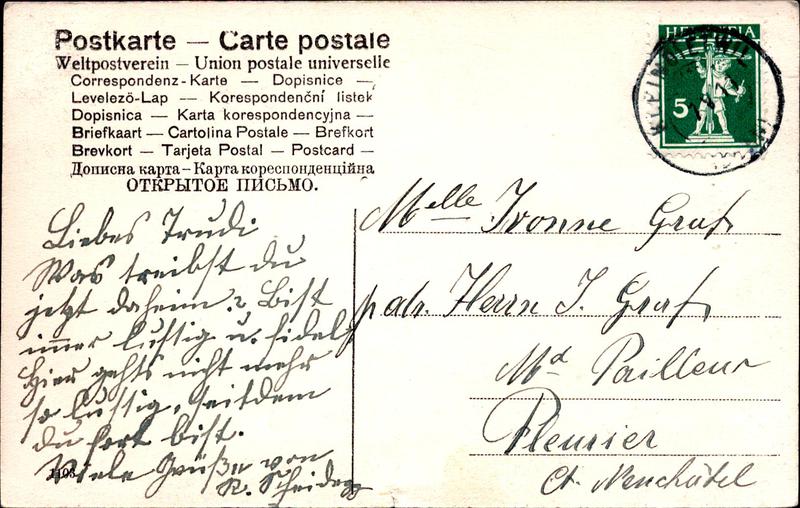 Postkarte — Carte postale
Weltpostverein — Union postale universelle
Correspondenz-Karte — Dopisnice —
Levelezö-Lap — Korespondenční listek
Dopisnica — Karta korespondencyjna —
Briefkaart — Cartolina Postale — Brefkort
Brevkort — Tarjeta Postal — Postcard —
Дописна карта — Карта кореспонденційна
ОТКРЫТОЕ ПИСЬМО.
HELVETIA
5
Liebes Trudi
Was treibst du
jetzt daheim? Bist
immer lustig u. fidel,
Hier gehts nicht mehr
so lustig, seitdem
du fort bist.
Viele Grüße von
R. Scheidegg
Melle Yvonne Graf
p. adr. Herrn J. Graf
Md Pailleur
Fleurier
Ct. Neuchâtel